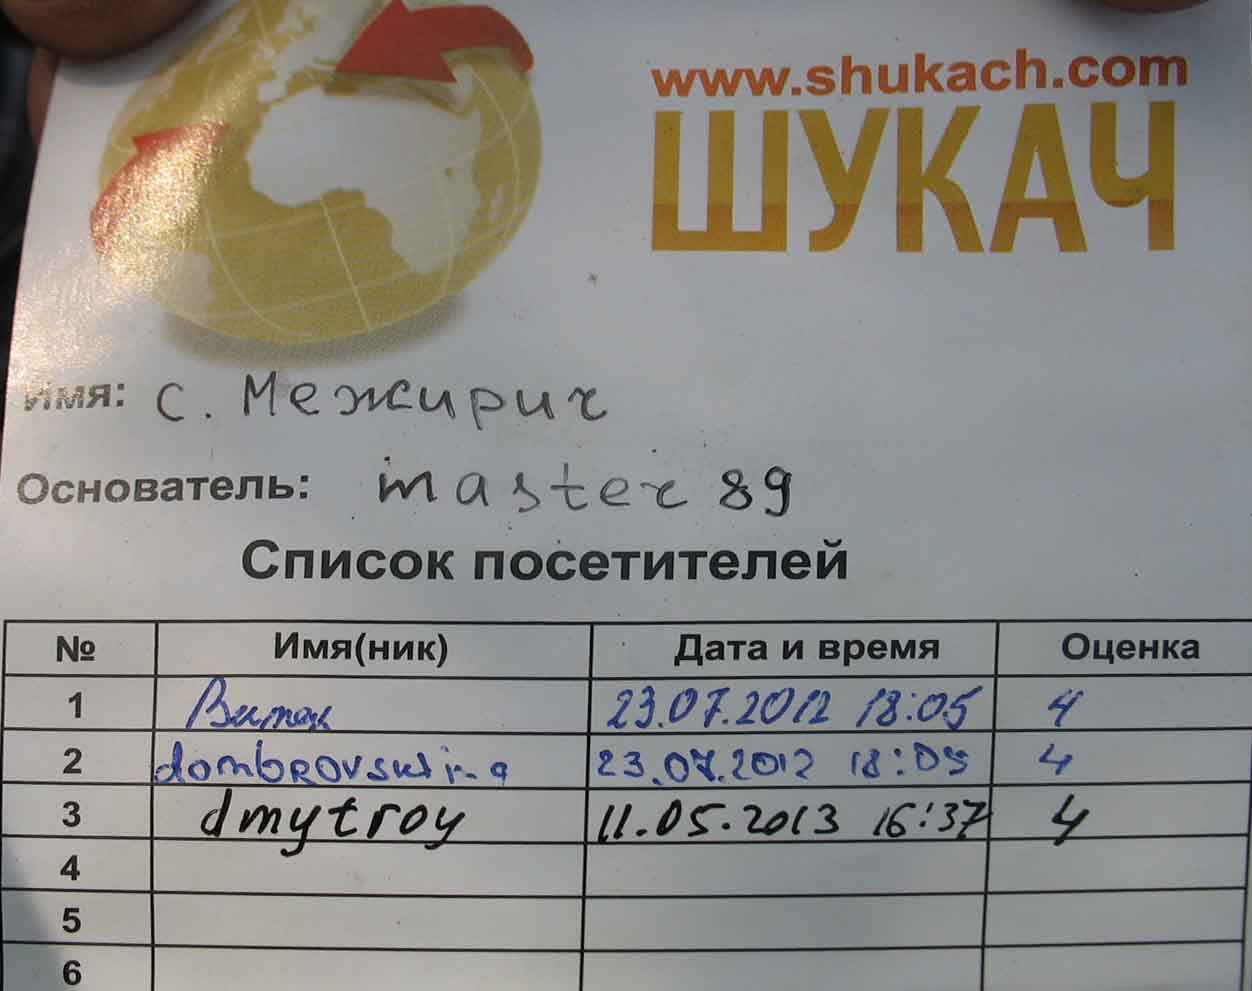 www.shukach.com
ШУКАЧ
Имя: с. Межирич
Основатель: master 89
Список посетителей
№ Имя(ник) Дата и время Оценка
1 Витек 23.07.2012 18:05 4
2 dombrovskijna 23.07.2012 18:05 4
3 dmytroy 11.05.2013 16:37 4
4
5
6